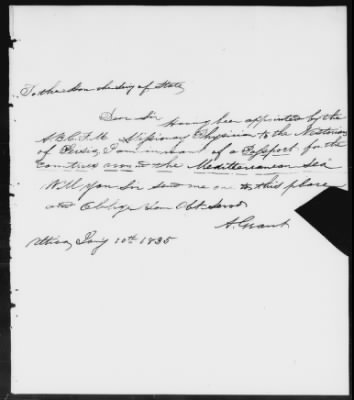 To the Hon the Secy of State
Dear Sir
having been appointed by the
A.B.C.F.M. Missionary Physician to the Nestorians
of Persia, I am in want of a Passport for the
Countries around the Mediterranean Sea
Will you Sir send me one to this place
and Oblige Your Obt Servt
A. Grant
Utica Jany 10th 1835